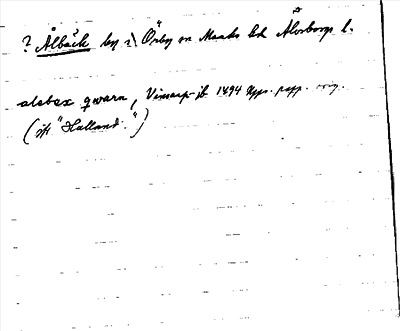 ? Ålbäck by i Örby sn Marks hd Älvsborgs l.
alabex qwarn, Vinsarp jb 1494 Upps. papp. orig.
(jfr "Halland.")